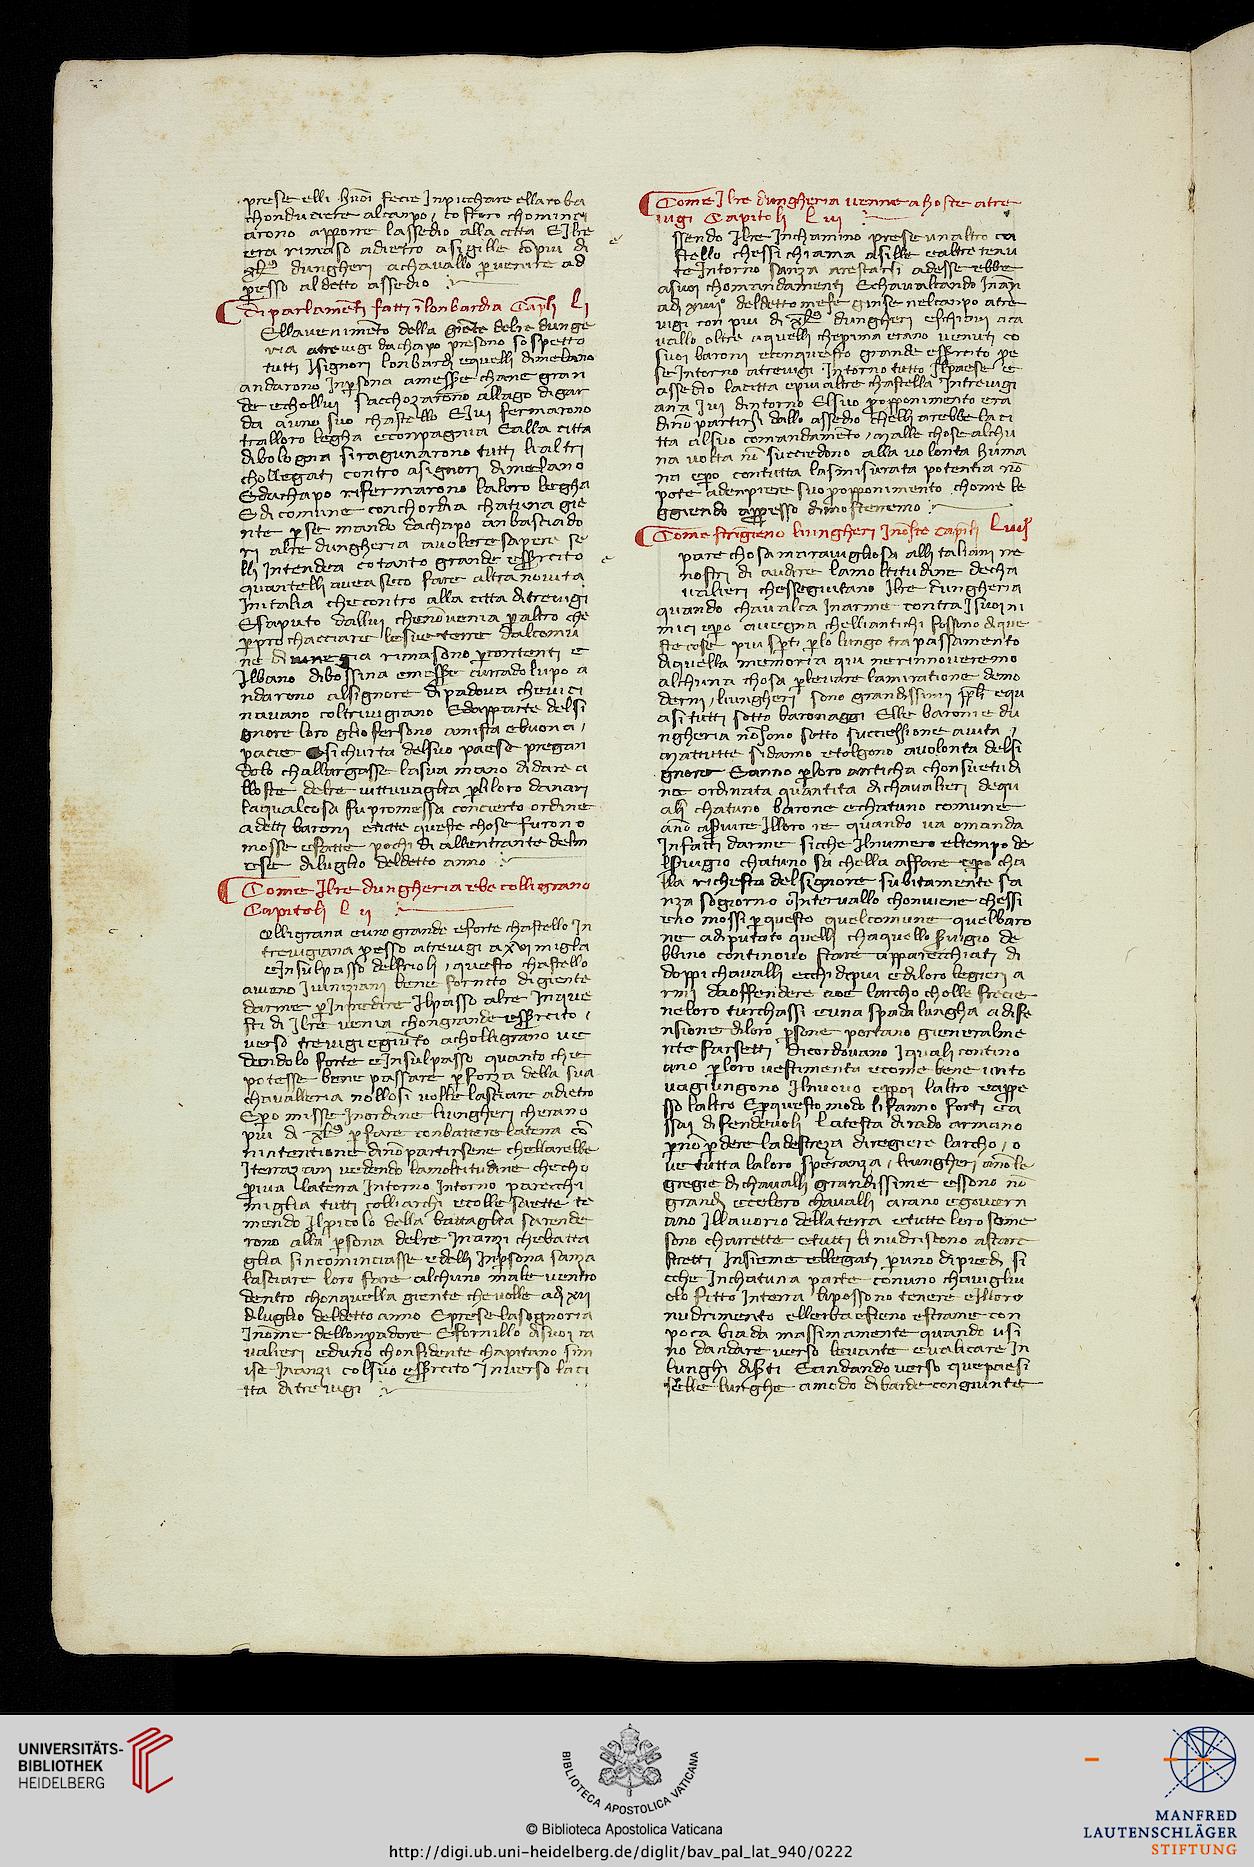 prese elli huoi fecie Inpicchare ella roba
chonduciere alcanpo, costoro chominci
arono apporre lassedio alla citta E Ilre
era rimaso adietro asigille con piu di
dungheri achavallo per venire ad
presso aldetto assedio
di parlamenti fatti inlonbardia Capitoli Li
Ellavenimento della giente delre dunghe
ria atrevigi dachapo presono sospetto
tutti Isignori lonbardi equelli dimelano
andarono Inpersona amessere chane gran
de echollui sacchozarono allago digar
da auno suo chastello E Ivi fermarono
tralloro legha econpagnia Ealla citta
dibologna siragunarono tutti lialtri
chollegati contro asignori dimelano
Edachapo rifermarono laloro leghga
E di comune conchordia chatuna gie
nte per se mando dachapo anbasciado
ri alre dungheria avolere sapere se
lli Intendea cotanto grande essercito
quantelli avea seco fare altra novita
Initalia checontro alla citta ditrevigi
Esaputo dallui chenonvenia peraltro che
perprochacciare lesueterre dalcomu
ne di vinegia rimasono percontenti e
Ilbano dibossina emessere currado lupo a
ndareno alsignore dipadova chevici
navano coltrivigiano Edapparte delsi
gnore loro gliofersono amista ebuona,
pacie sichurta delsuo paese pregan
dolo challargasse lasua mano didare a
lloste delre vittuvaglia perliloro danari
laqualcosa fupromessa concerto ordine
adetti baroni etutte queste chose furono
mosse efatte pochi di allentrante delm
ese diluglio deldetto anno
Come Ilre dungheria ebe colligrano
Capitoli L ii
Olligrana euno grande eforte chastello In
trevigiana presso atrevigi a xvi miglia
eInsulpasso delfrioli, questo chastello
aveno Iviniziani bene fornito digiente
darme perInpedire Ilpasso alre Inque
sti di Ilre venia chongrande essercito,
verso trevigi egiunto acholligrano ve
dendolo forte eInsulpasso quanto che
potesse bene passare perforza della sua
chavalleria nollosi volle lasciare adietro
Epero misse Inordine liungheri cherano
piu di perfare conbattere laterra con
nintentione dinonpartirsene chellarebbe
Iterrazzani vedendo lamoltitudine checho
priva laterra Intorno Intorno parecchi
miglia tutti colliarchi ecolle saette te
mendo Ilpicolo della battaglia sarende
rono alla persona delre Inanzi chebatta
glia sincominciasse edelli Inpersona sanza
lasciare loro fare alchuno male ventro
dentro chonquella giente chevolle adi xii
diluglio deldetto anno Eprese lasignoria
Inome dellonpadore Efornillo disuoi ca
valieri eduno chonfidente chapitano sim
ise Inanzi colsuo essercito Inverso laci
tta ditrevigi
Come Ilre dungheria venne ahoste atre
vigi Capitoli L iii
ssendo Ilre Inchamino prese unaltro ca
stello chessi chiama asille ealtre tenu
te Intorno sanza arestarsi adesse ebbe
asuoi chomandamenti Echavalcando Inan
adi xviii deldetto mese giunse nelcanpo atre
vigi con piu di dungheri eschiavi aca
vallo oltre aquelli cheprima erano venuti co
suoi baroni econquesto grande essercito pe
se Intorno atrevigi Intorno tutto Ilpaese e
assedio lacitta epiualtre chastella Intrevigi
ana Ivi dintorno Elsuo proponimento era
dino partirsi dallo assedio chelli arebbe laci
tta alsuo comandamento, malle chose alchu
na volta non succiedono alla volonta huma
na epero contutta lasmisurata potentia non
pote adenpiere suo proponimento chome le
ggiendo appresso dimostereno
Come stregieno liungheri Inoste capitoli L iiij
pare chosa maravigliosa alli taliani ne
nostri di audire lamoltitudine decha
valieri chesseguitano Ilre dungheria
quando chavalca Inarme contra Isuoi ni
mici epero avegna chelliantichi fossono dique
ste cose piu sperti perlo lungo trapassamento
diquella memoria qui nerinnoveremo
alchuna chosa perlevare lamiratione demo
derni, liungheri sono grandissimi popoli equ
asi tutti sotto baronaggi Elle baronie du
ngheria nonsono sotto succiessione avita,
mattutte sidanno etolgono avolonta delsi
gnore Eanno perloro anticha chonsuetudi
ne ordinata quantita dichavalieri dequ
ali chatuno barone echatuno comune
ano aservire Illoro re quando va omanda
Infatti darme sicche Ilnumero eltempo de
lservigio chatuno sa chella affare epero cha
lla richesta delsignore subitamente sa
nza sogiorno ointervallo chonviene chessi
eno mossi perquesto quelcomune quelbaro
ne adiputato quelli chaquello servigio de
bbino continovo stare apparecchiati di
doppi chavalli ecchi dipiu ediloro legieri a
rmi daoffendere cioe larcho cholle frecie
neloro turchassi euna spada lungha adife
nsione diloro persone portano gieneralme
nte farsetti dicordovano Iquali contino
ano perloro vestimenta ecome bene unto
vagiungono Ilnuovo eppoi laltro eappe
sso laltro Eperquesto modo lifanno forti ea
ssai difendevoli Latesta dirado armano
pernonperdere ladestreza diregiere larcho, o
ve tutta laloro speranza, liungheri anole
gregie dichavalli grandissime essono non
grandi ecoloro chavalli arano egovern
ano Illavorio dellaterra etutte loro some
sono charette etutti linudriscono astare
stretti Insieme ellegati peruno dipiedi, si
cche Inchatuna parte conuno chavigliu
olo fitto Interra lipossono tenere eIlloro
nudrimento ellerba efieno estrame con
poca biada massimamente quando usi
no dandare verso levante evalicare In
lunghi diserti Eandando verso quepaesi
selle lunghe amodo dibarde congiunte
UNIVERSITÄTS-
BIBLIOTHEK
HEIDELBERG
BIBLIOTECA APOSTOLICA VATICANA
© Biblioteca Apostolica Vaticana
http://digi.ub.uni-heidelberg.de/diglit/bav_pal_lat_940/0222
MANFRED
LAUTENSCHLÄGER
STIFTUNG